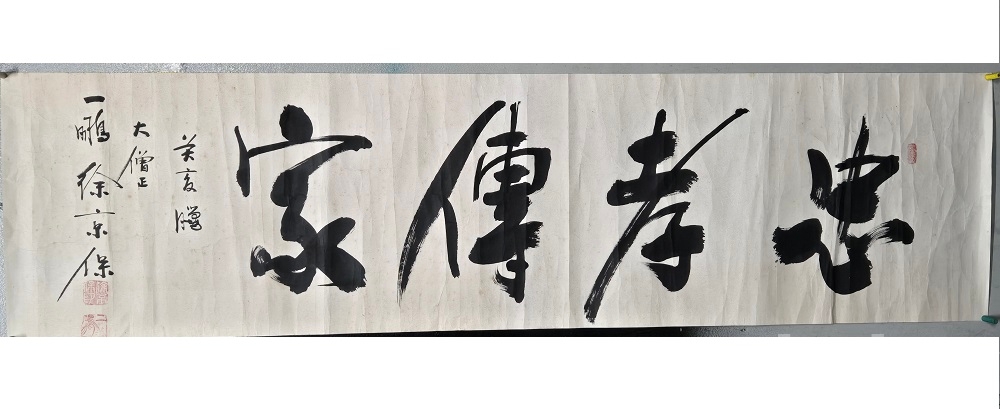 忠孝傳家
癸亥臘
大僧正
一鵬徐京保